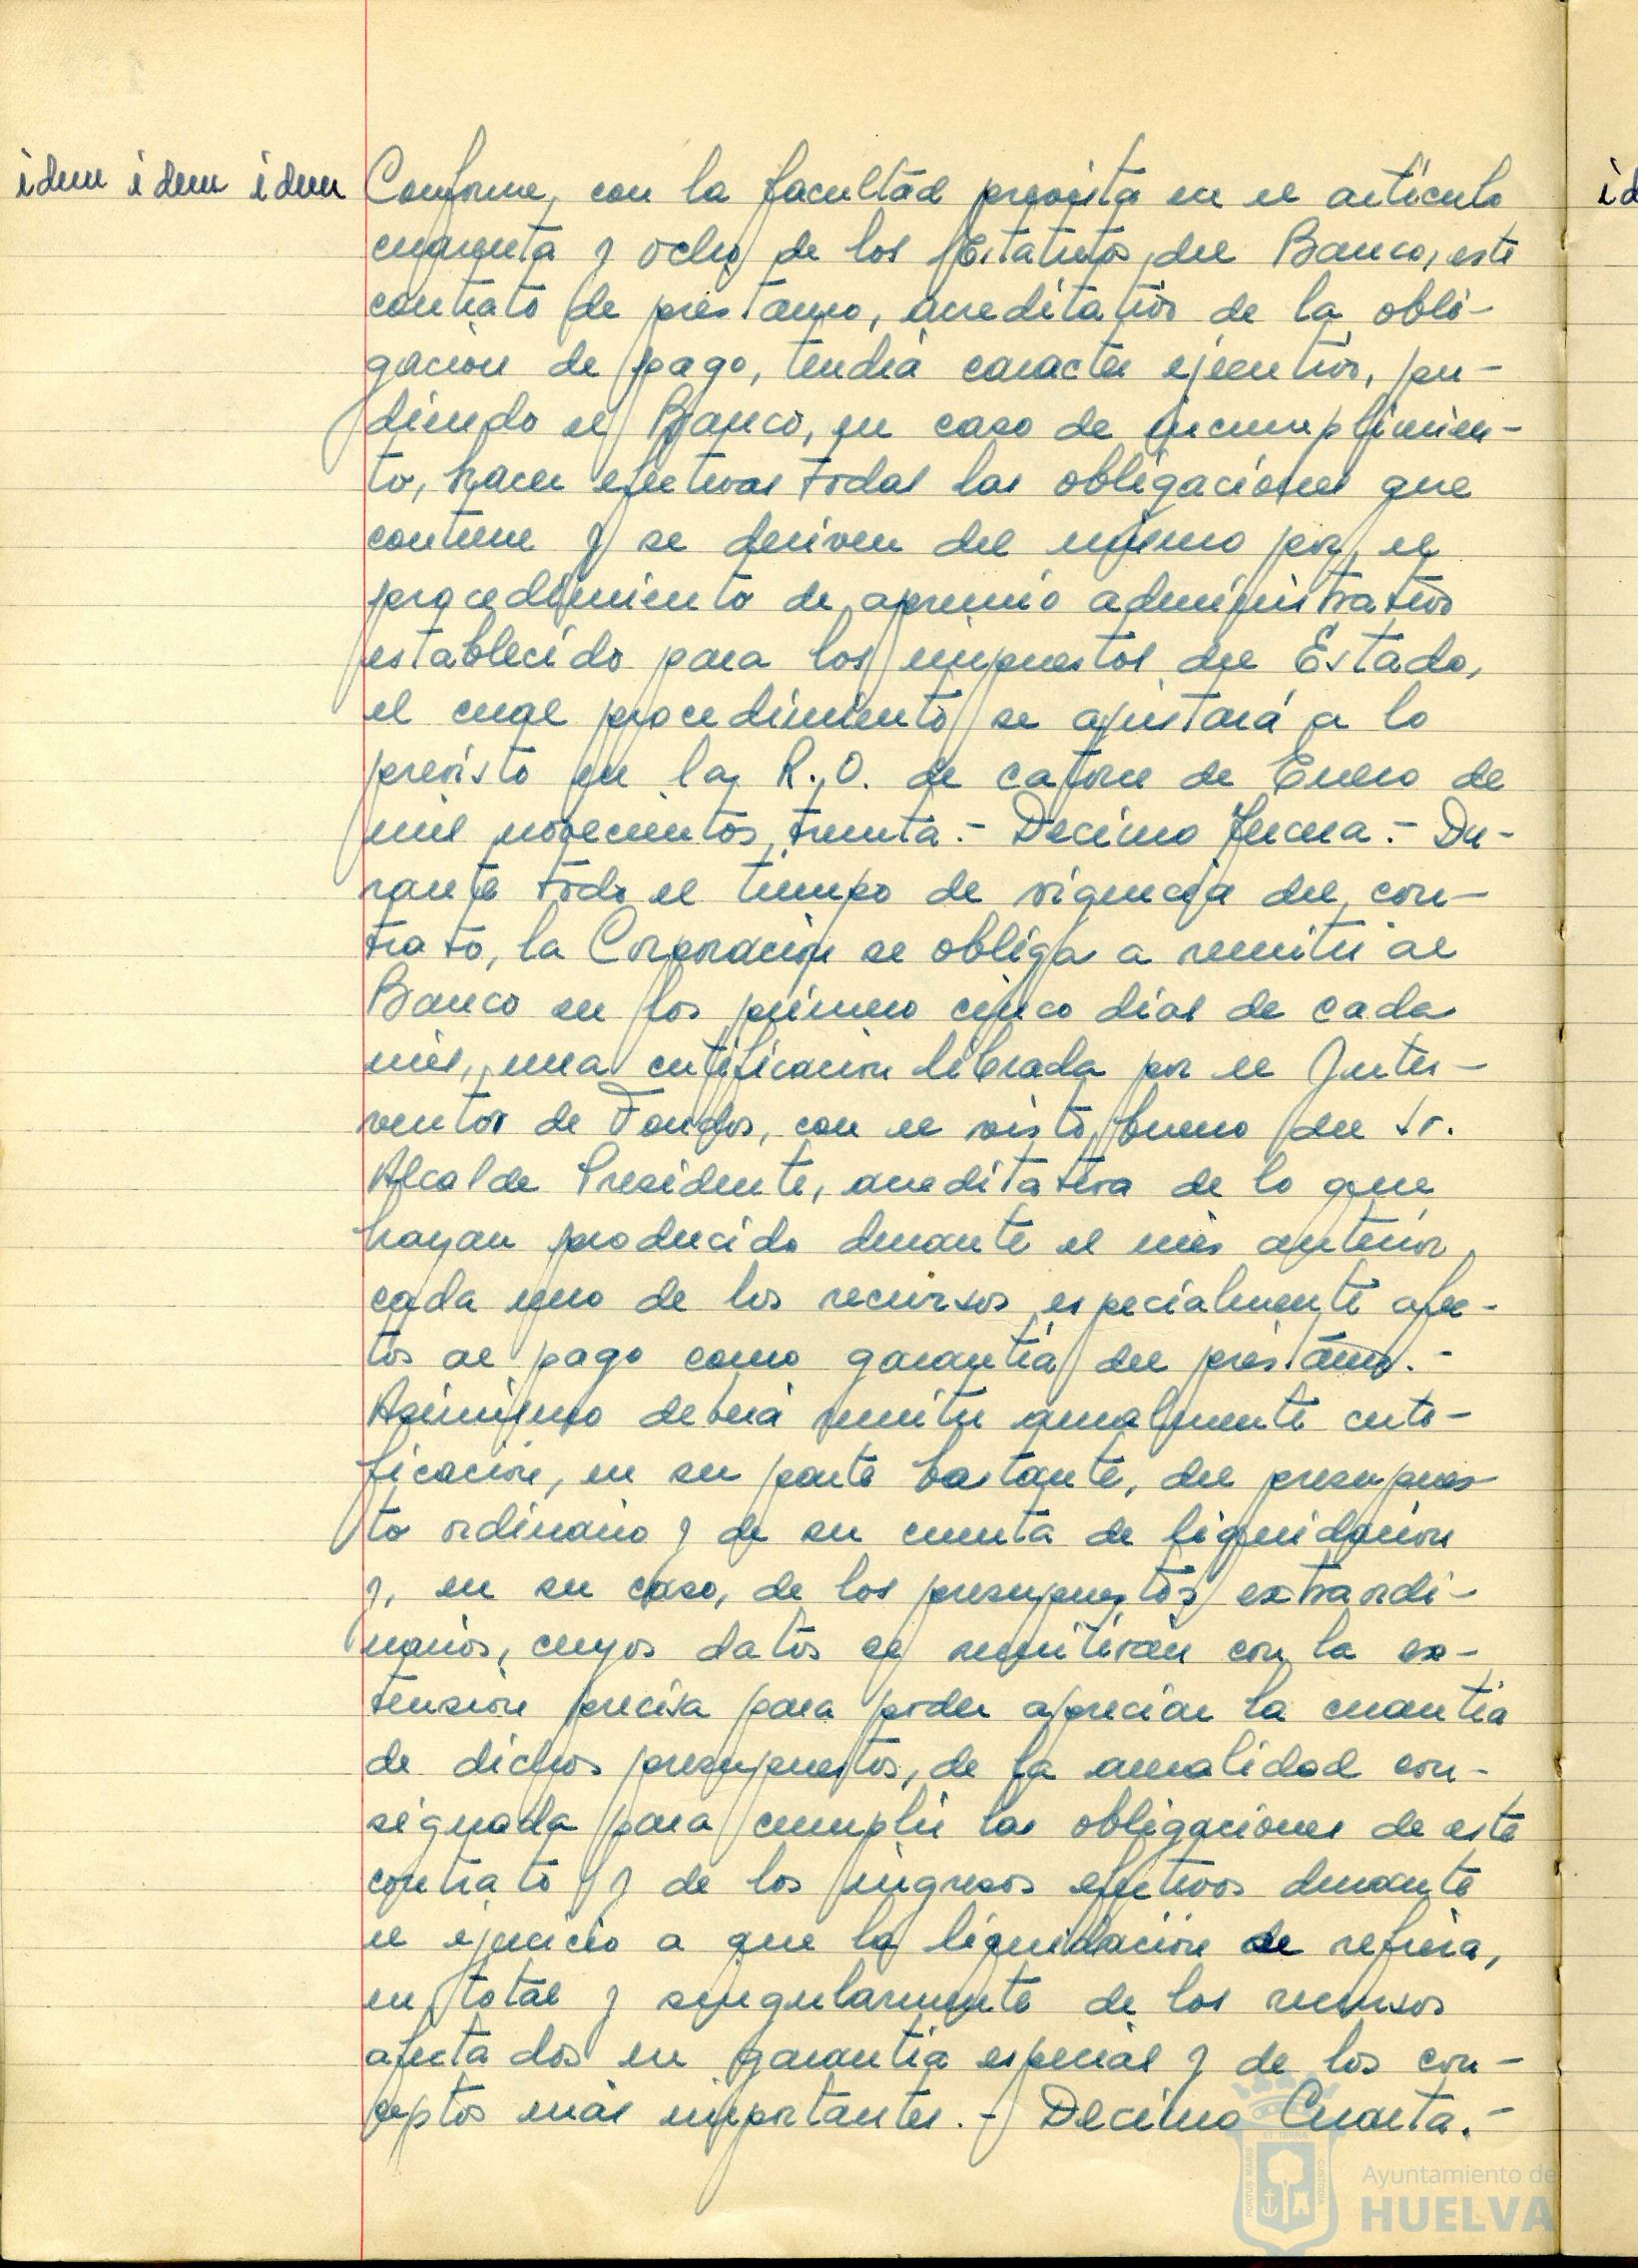 idem idem idem
Conforme, con la facultad prevista en el artículo
cuarenta y ocho de los Estatutos del Banco, este
contrato de préstamo, acreditativo de la obli-
gación de pago, tendrá caracter ejecutivo, pu-
diendo el Banco, en caso de incumplimien-
to, hacer efectivas todas las obligaciones que
contiene y se deriven del mismo por el
procedimiento de apremio administrativo
establecido para los impuestos del Estado,
el cual procedimiento se ajustará a lo
previsto en la R.O. de catorce de Enero de
mil novecientos treinta.- Decimo Tercera.- Du-
rante todo el tiempo de vigencia del con-
trato, la Corporación se obliga a remitir al
Banco en los primero cinco días de cada
mes, una certificación librada por el Inter-
ventor de Fondos, con el visto bueno del Sr.
Alcalde Presidente, acreditativa de lo que
hayan producido durante el mes anterior
cada uno de los recursos especialmente afec-
tos al pago como garantía del préstamo.-
Asimismo deberá remitir anualmente certi-
ficación, en su parte bastante, del presupues-
to ordinario y de su cuenta de liquidación
y, en su caso, de los presupuestos extraordi-
narios, cuyos datos se remitirán con la ex-
tensión precisa para poder apreciar la cuantía
de dichos presupuestos, de la anualidad con-
signada para cumplir las obligaciones de este
contrato y de los ingresos efectivos durante
el ejercicio a que la liquidación se refiera,
en total y singularmente de los recursos
afectados en garantía especial y de los con-
ceptos más importantes.- Decimo Cuarta.-
id
PORTUS MARIS ET TERRAE CUSTODIA
Ayuntamiento de
HUELVA